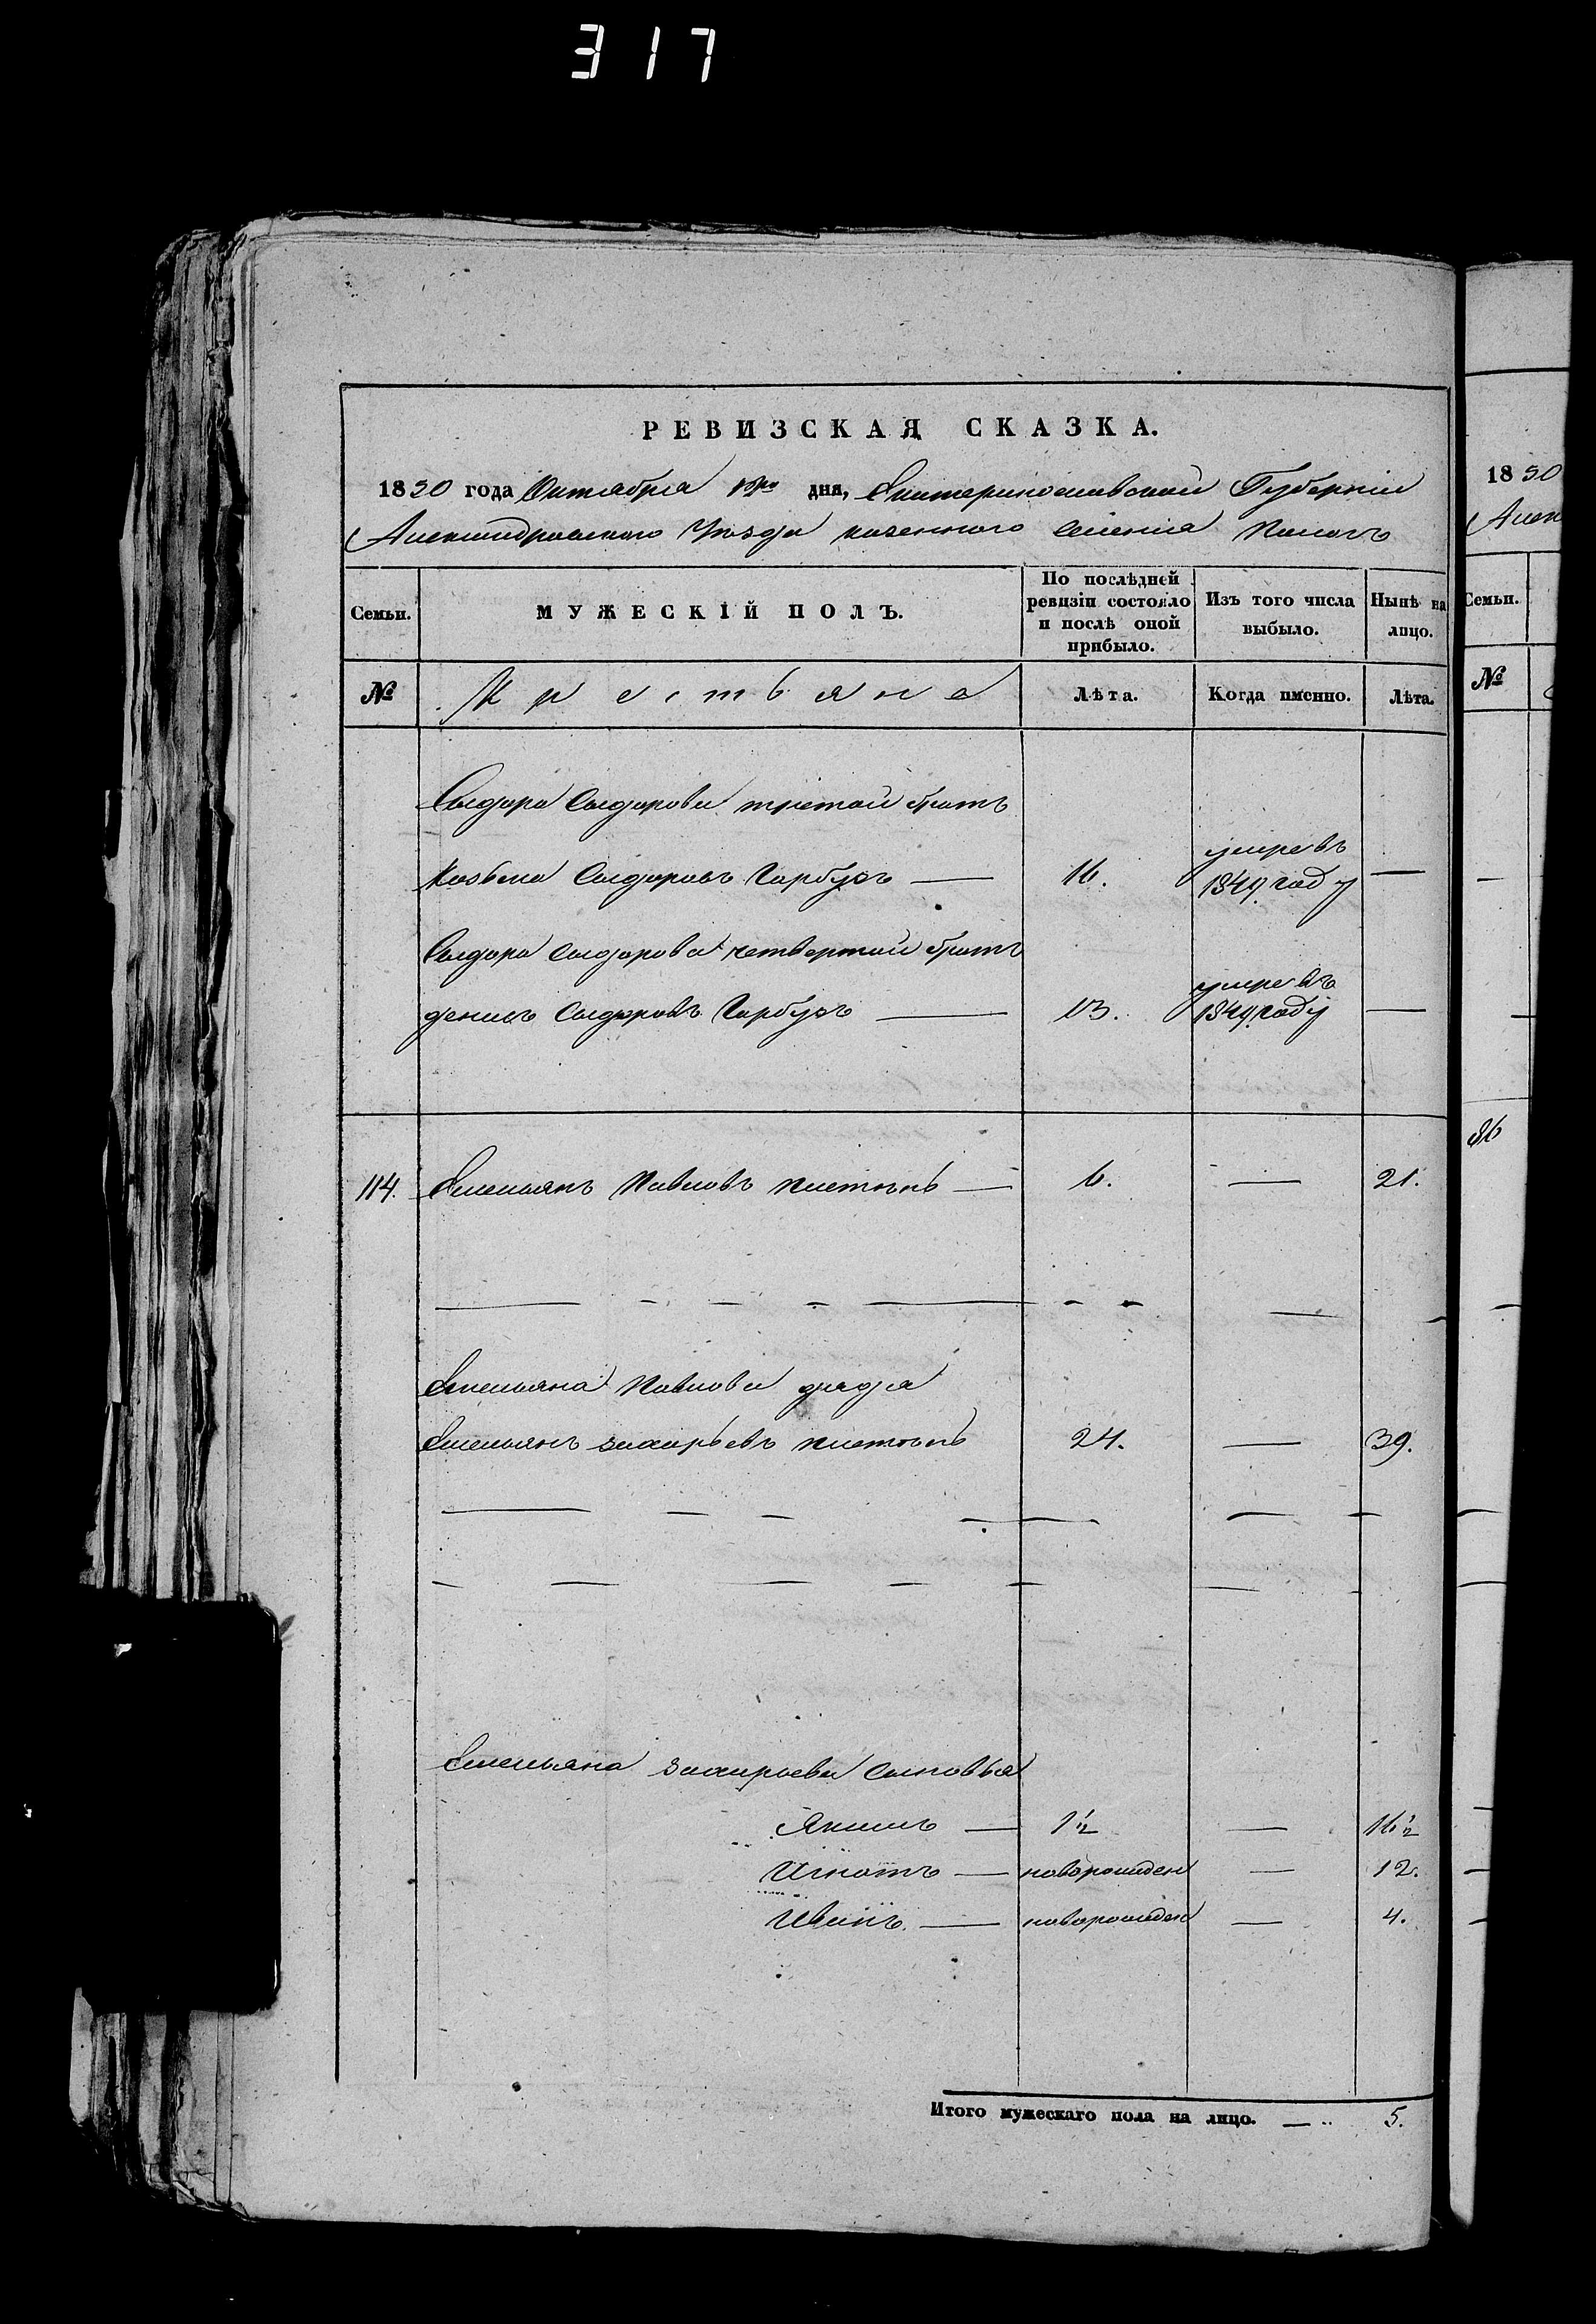 317
РЕВИЗСКАЯ СКАЗКА.
1850 года Октября дня, Екатеринославской Губернии
Александровского Уѣзда казенного селения Пологъ
Семьи.
МУЖЕСКІЙ ПОЛЪ.
По послѣдней ревизіи состояло и послѣ оной прибыло.
Изъ того числа выбыло.
Нынѣ на лицо.
№
Крестьяне
Лѣта.
Когда именно.
Лѣта.
Сидора Сидорова третой братъ
Козьма Сидоровъ Гарбузъ — 16. умре въ 1849 году —
Сидора Сидорова четвертой братъ
денисъ Сидоровъ Гарбузъ — 13. умре въ 1849 году —
114. Емельянъ Павловъ — 6. — 21.
Емельяна Павлова дядя
Емельянъ захарьевъ 24. — 39.
Емельяна захарьева сыновья
Якимъ — 1 1/2 — 16 1/2
Игнатъ — новорожден — 12.
Иванъ. — новорожден — 4.
Итого мужескаго пола на лицо. — 5.
1850
Алек
Семьи.
№